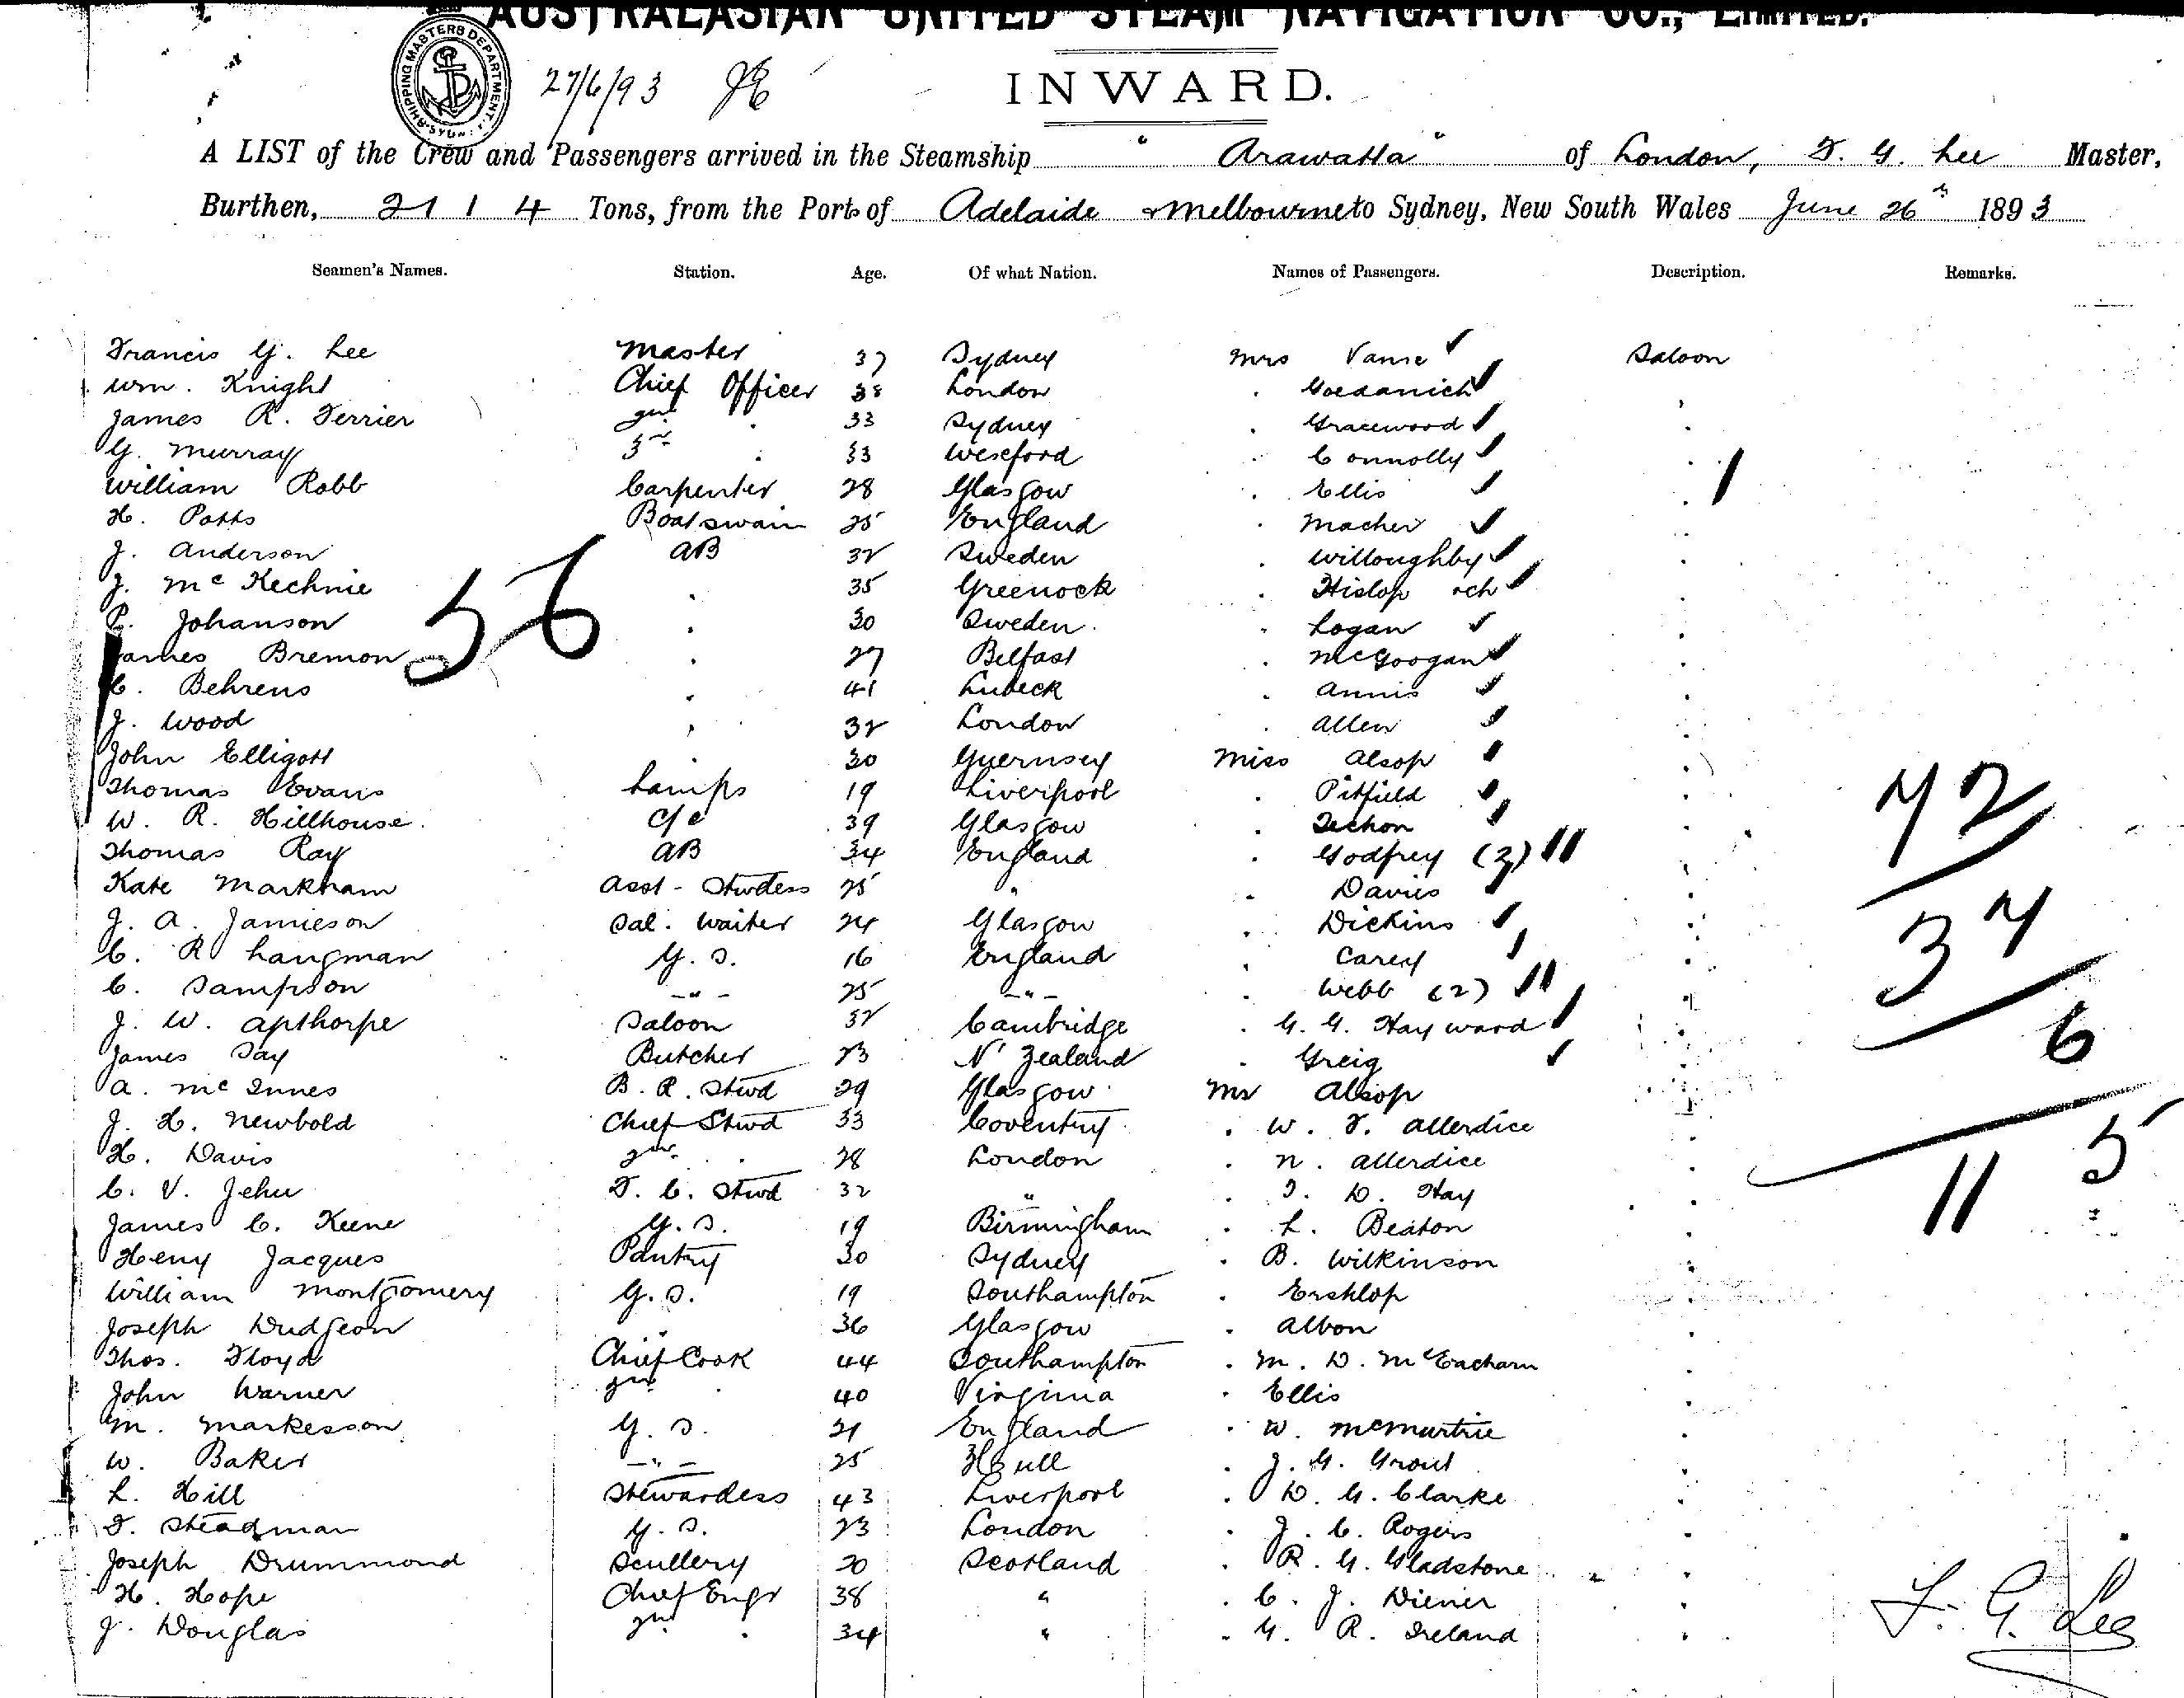 AUSTRALASIAN UNITED STEAM NAVIGATION CO., LIMITED.
SHIPPING MASTERS DEPARTMENT
27/6/93
INWARD.
A LIST of the Crew and Passengers arrived in the Steamship "Arawatta" of London, F. G. Lee Master,
Burthen, 2114 Tons, from the Ports of Adelaide & Melbourne to Sydney, New South Wales June 26th 1893
Seamen's Names. Station. Age. Of what Nation. Names of Passengers. Description. Remarks.
Francis G. Lee Master 37 Sydney Mrs Vance Saloon
Wm. Knight Chief Officer 38 London
James R. Ferrier 2nd 33 Sydney Gracewood
G. Murray 3rd 33 Wexford Connolly
William Robb Carpenter 28 Glasgow Ellis
H. Potts Boatswain 25 England Macher
J. Anderson AB 32 Sweden Willoughby
J. McKechnie 35 Greenock Hislop & ch
P. Johanson 30 Sweden Logan
James Bremon 27 Belfast McGoogan
C. Behrens 41 Lubeck Annis
J. Wood 32 London Allen
John Elligott 30 Guernsey Miss Alsop
Thomas Evans Lamps 19 Liverpool Pitfield
W. R. Hillhouse 39 Glasgow
Thomas Ray AB 34 England Godfrey
Kate Markham Asst - Stwdess 25 " Davies
J. A. Jamieson Sal. Waiter 24 Glasgow Dickins
C. R Langman G. S. 16 England Carey
C. Sampson -"- 25 -"- Webb (2)
J. W. Apthorpe Saloon 32 Cambridge G. G. Hayward
James Day Butcher 23 N' Zealand Greig
A. McInnes B. R. Stwd 29 Glasgow Mr Alsop
J. H. Newbold Chief Stwd 33 Coventry W. F. Allerdice
H. Davis 2nd 28 London N. Allerdice
C. V. Jehu F. C. Stwd 32 " Hay
James C. Keene G. S. 19 Birmingham L. Beaton
Heny Jacques Pantry 30 Sydney B. Wilkinson
William Montgomery G. S. 19 Southampton
Joseph Dudgeon " 36 Glasgow Albon
Thos. Floyd Chief Cook 44 Southampton M. D. McEacharn
John Warner 2nd 40 Virginia Ellis
M. Markesson G. S. 21 England W. McMurtrie
W. Baker -"- 25 Hull J. G. Grout
L. Hill Stewardess 43 Liverpool D. G. Clarke
F. Steadman G. S. 23 London J. C. Rogers
Joseph Drummond Scullery 20 Scotland R. G. Gladstone
H. Hope Chief Engr 38 " C. J. Diener
J. Douglas 2nd 34 " G. R. Ireland
56
72
37
6
115
F. G. Lee